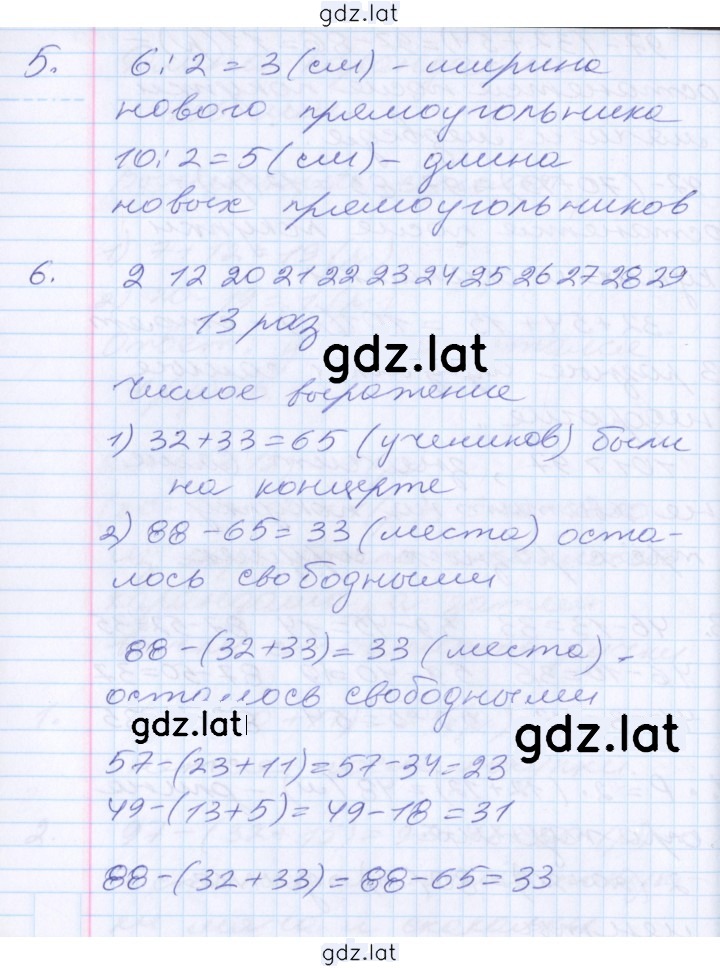 gdz.lat
5. 6:2=3(см)- ширина
нового прямоугольника
10:2=5(см)- длина
новых прямоугольников
6. 2 12 20 21 22 23 24 25 26 27 28 29
13 раз
gdz.lat
Числое выражение
1) 32+33=65 (учеников) были
на концерте
2) 88-65=33 (места) оста-
лось свободными
88-(32+33)=33 (места) -
осталось свободными
gdz.lat
gdz.lat
57-(23+11)=57-34=23
49-(13+5)=49-18=31
88-(32+33)=88-65=33
gdz.lat